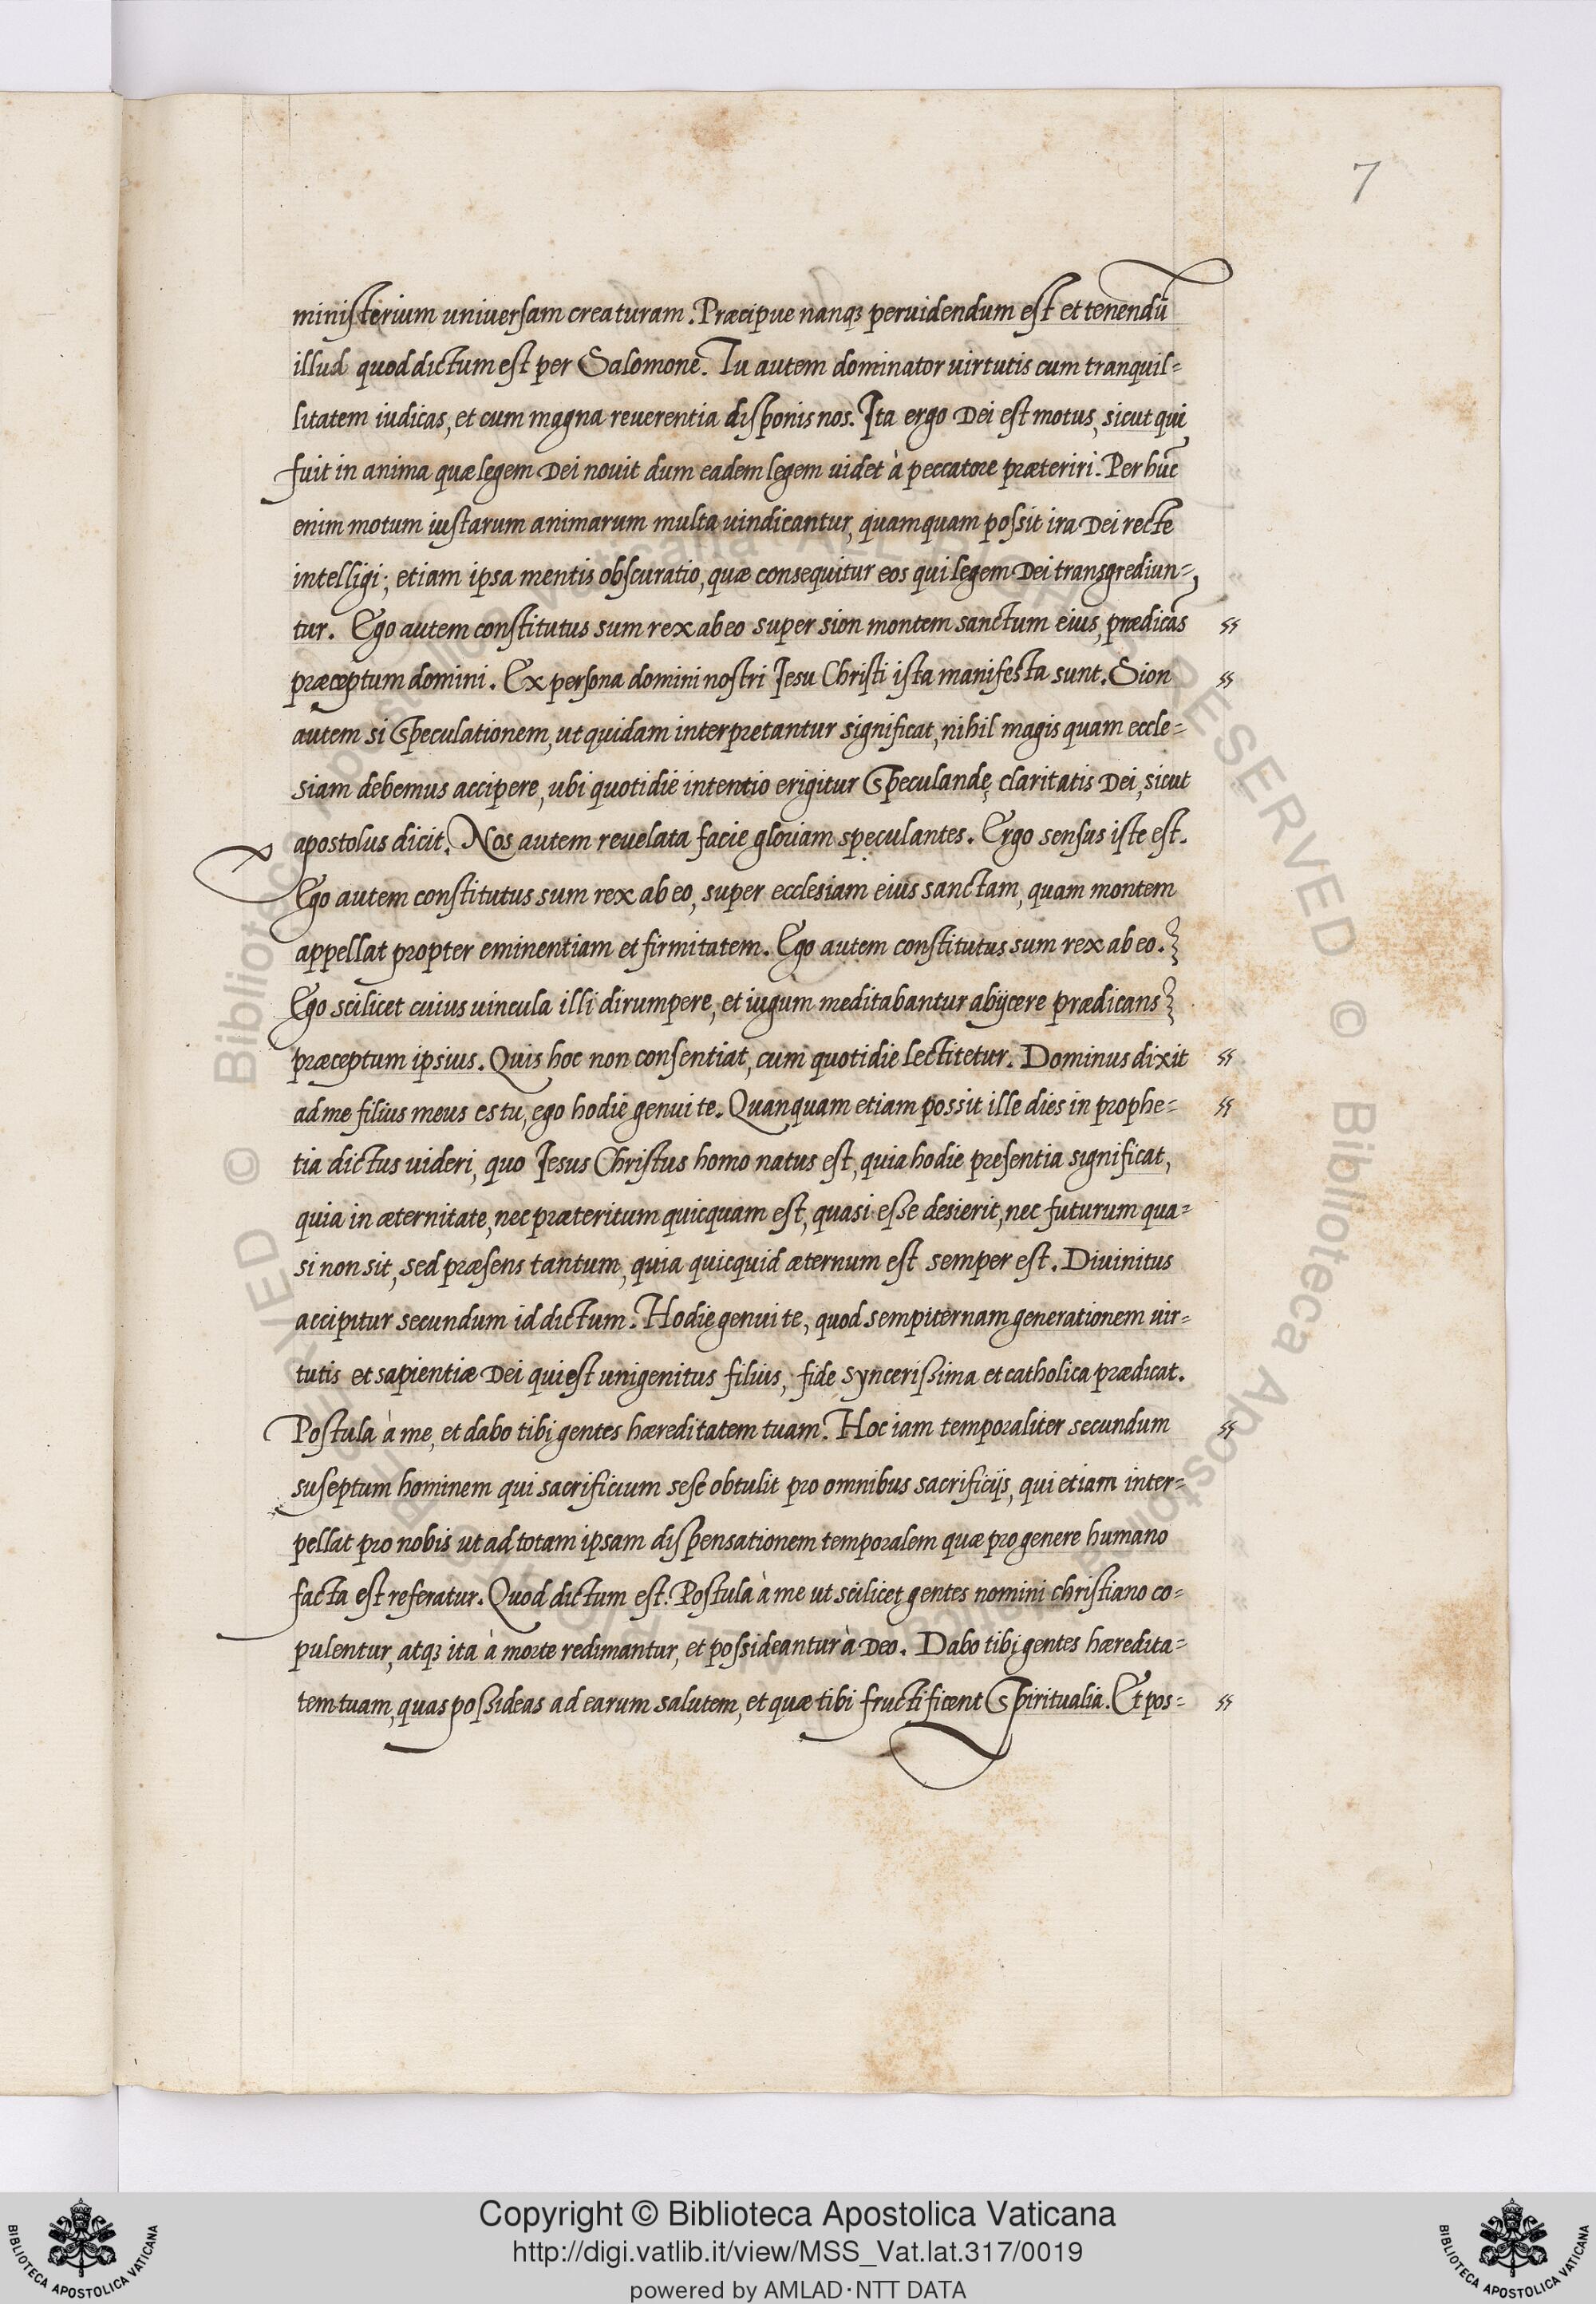 7
ministerium uniuersam creaturam. Præcipue nanq3 peruidendum est et tenendū
illud quod dictum est per Salomonē. Tu autem dominator virtutis cum tranquil=
litatem iudicas, et cum magna reuerentia disponis nos. Ita ergo Dei est motus, sicut qui
fuit in anima quæ legem Dei nouit dum eadem legem uidet à peccatore præteriri. Per hūc
enim motum iustarum animarum multa uindicantur, quamquam possit ira Dei recte
intelligi; etiam ipsa mentis obscuratio, quæ consequitur eos qui legem Dei transgrediun=
tur. Ego autem constitutus sum rex ab eo super sion montem sanctum eius, prædicās
præceptum domini. Ex persona domini nostri Jesu Christi ista manifesta sunt. Sion
autem si speculationem, ut quidam interpretantur significat, nihil magis quam eccle=
siam debemus accipere, ubi quotidie intentio erigitur speculandę claritatis Dei, sicut
apostolus dicit. Nos autem reuelata facie gloriam speculantes. Ergo sensus iste est.
Ego autem constitutus sum rex ab eo, super ecclesiam eius sanctam, quam montem
appellat propter eminentiam et firmitatem. Ego autem constitutus sum rex ab eo.
Ego scilicet cuius uincula illi dirumpere, et iugum meditabantur abijcere prædicans
præceptum ipsius. Quis hoc non consentiat, cum quotidie lectitetur. Dominus dixit
ad me filius meus es tu, ego hodie genui te. Quanquam etiam possit ille dies in prophe=
tia dictus uideri, quo Jesus Christus homo natus est, quia hodie presentia significat,
quia in æternitate, nec præteritum quicquam est, quasi esse desierit, nec futurum qua=
si non sit, sed præsens tantum, quia quicquid æternum est semper est. Diuinitus
accipitur secundum id dictum. Hodie genui te, quod sempiternam generationem uir=
tutis et sapientiæ Dei qui est unigenitus filius, fide syncerissima et catholica prædicat.
Postula à me, et dabo tibi gentes hæreditatem tuam. Hoc iam temporaliter secundum
suseptum hominem qui sacrificium sese obtulit pro omnibus sacrificijs, qui etiam inter=
pellat pro nobis ut ad totam ipsam dispensationem temporalem quæ pro genere humano
facta est referatur. Quod dictum est. Postula à me ut scilicet gentes nomini christiano co=
pulentur, atq3 ita à morte redimantur, et possideantur à Deo. Dabo tibi gentes hæredita=
tem tuam, quas possideas ad earum salutem, et quæ tibi fructificent spiritualia. Et pos=
Copyright © Biblioteca Apostolica Vaticana
http://digi.vatlib.it/view/MSS_Vat.lat.317/0019
powered by AMLAD·NTT DATA
BIBLIOTECA APOSTOLICA VATICANA
BIBLIOTECA APOSTOLICA VATICANA